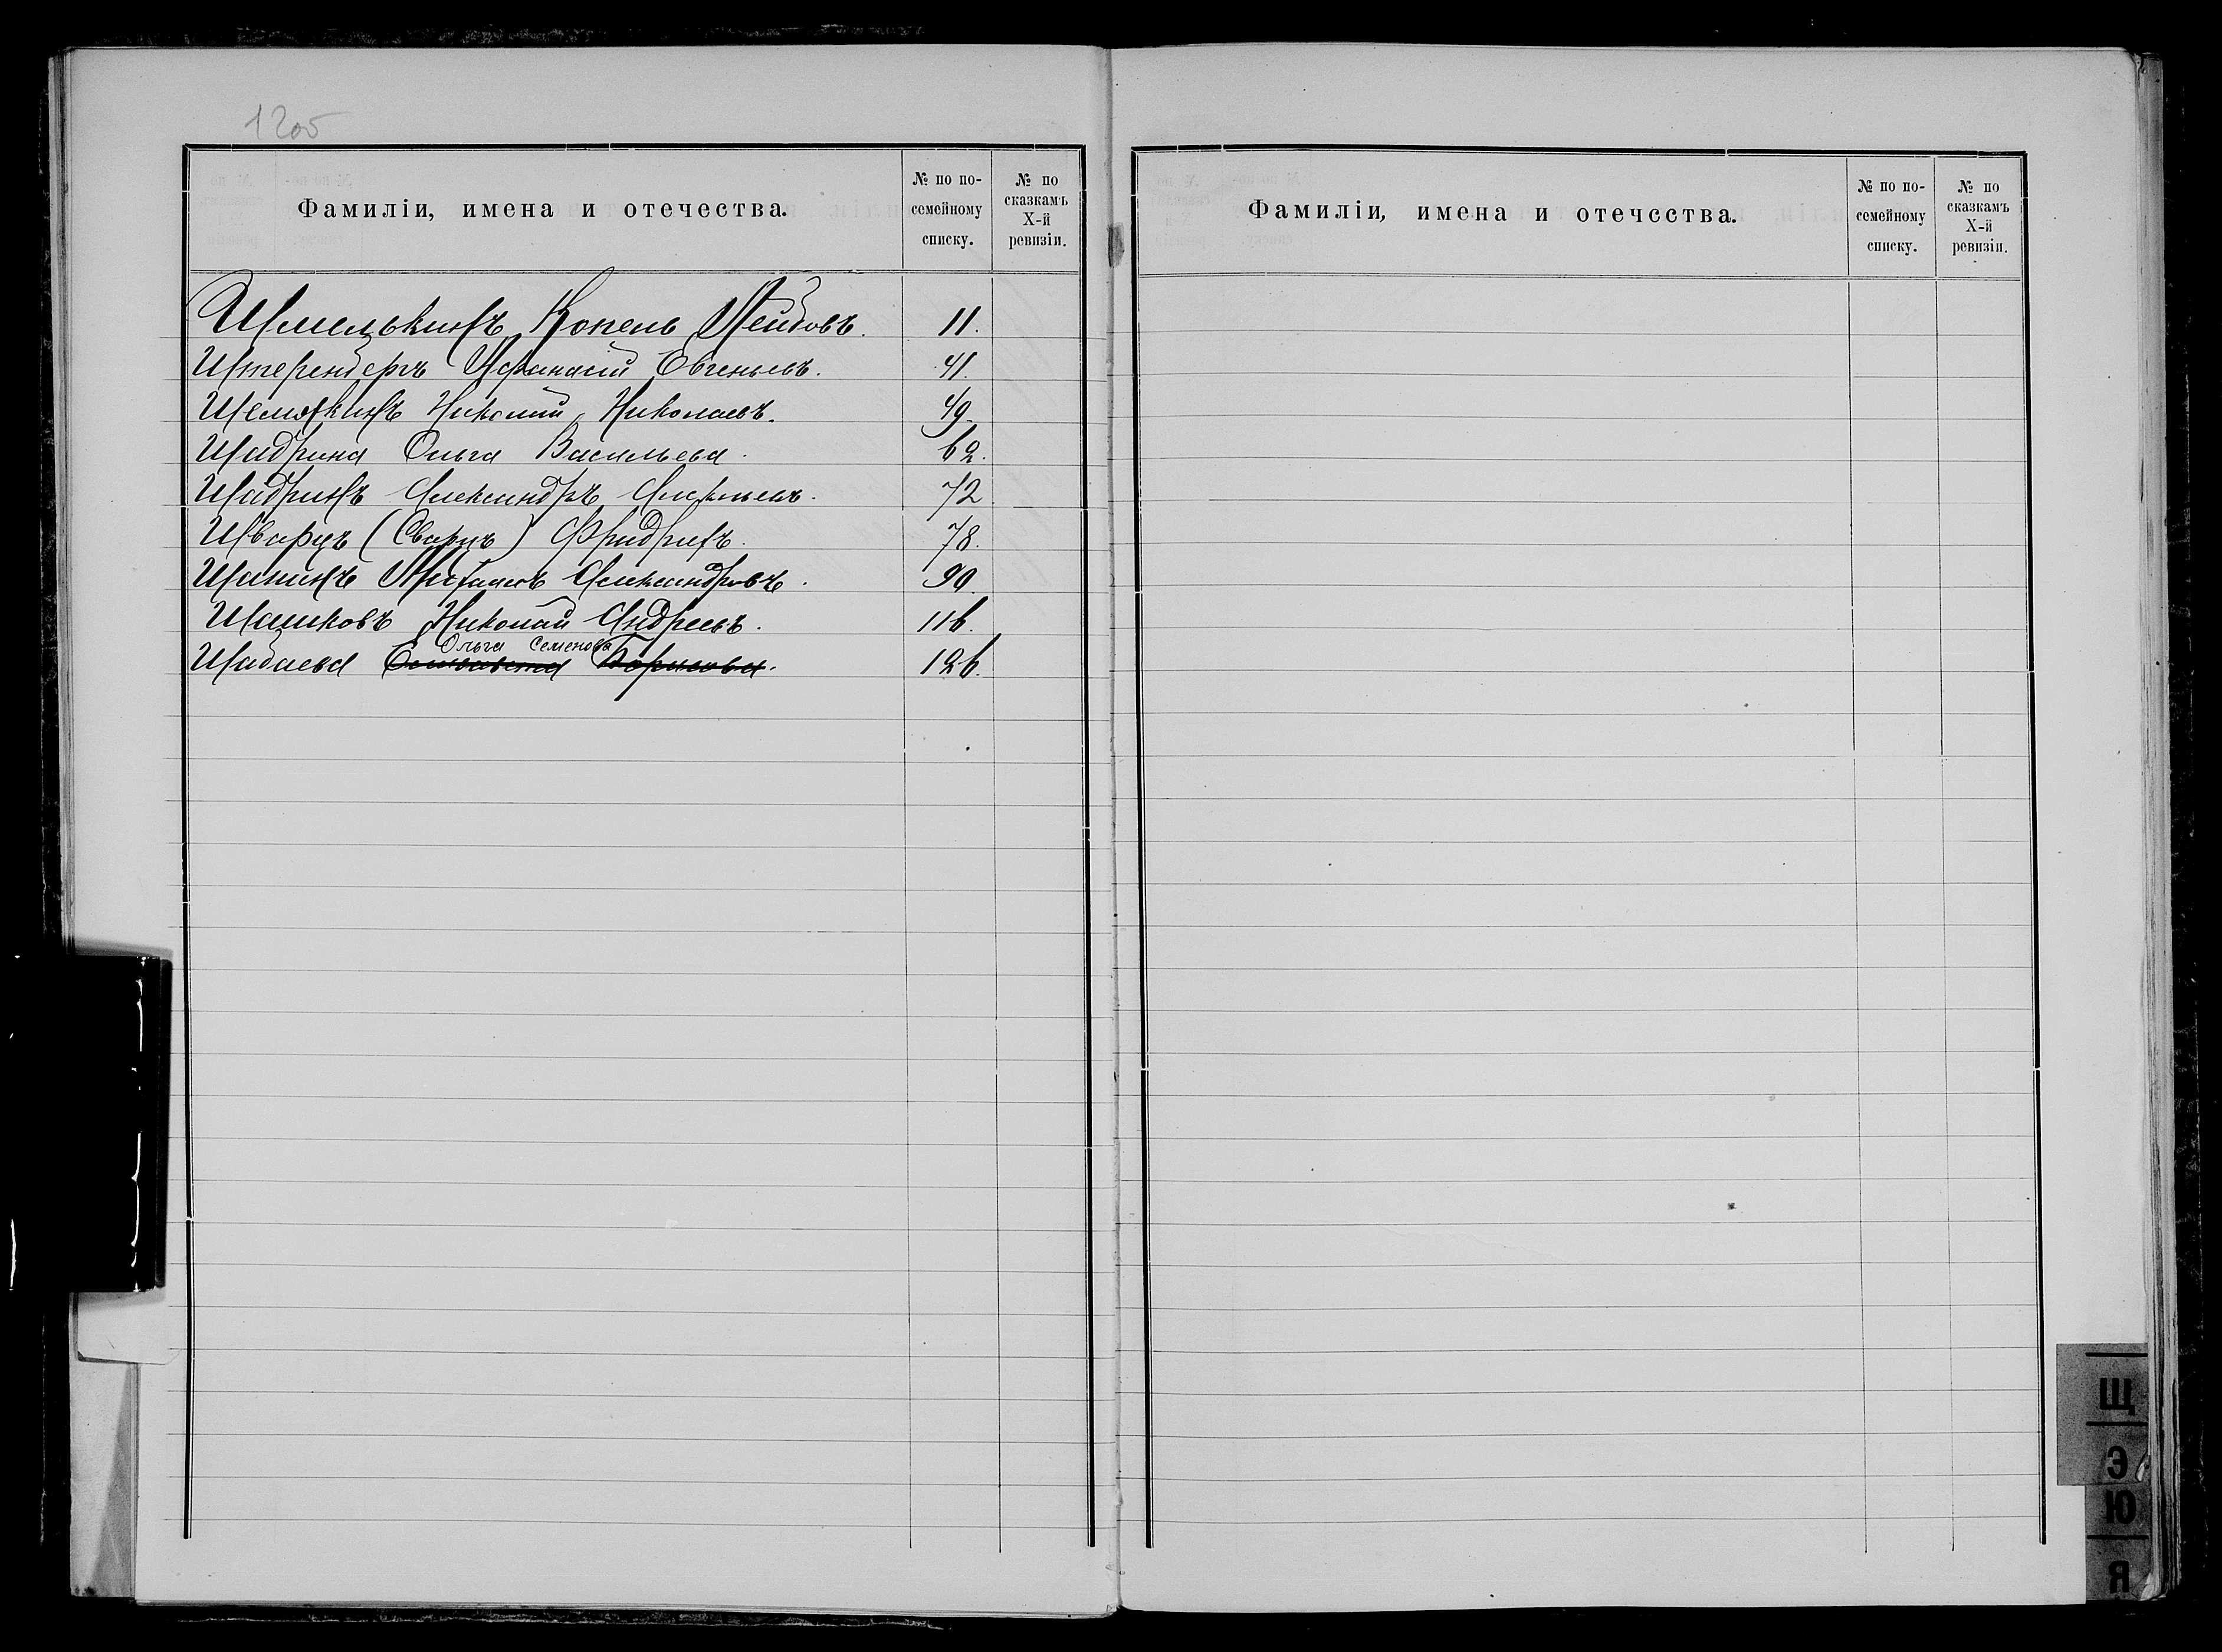 12об
Фамиліи, имена и отечества.
№ по по-
семейному
списку.
№ по
сказкамъ
X-й
ревизіи.
Шмелькинъ Копель Лейбовъ. 11.
Штерендергъ Афанасій Евгеньевъ. 41.
Шемякинъ Николай Николаевъ. 49.
Шадрина Ольга Васильева. 62.
Шадринъ Александръ 72
Шварцъ (Сварцъ) Фридрихъ. 78.
Шанинъ Михаилъ Александровъ. 90.
Шашковъ Николай Андреевъ. 116.
Ольга Семенова
Шабаева Елизавета Борисова. 126.
Фамиліи, имена и отечества.
№ по по-
семейному
списку.
№ по
сказкамъ
X-й
ревизіи.
Щ
Э
Ю
Я